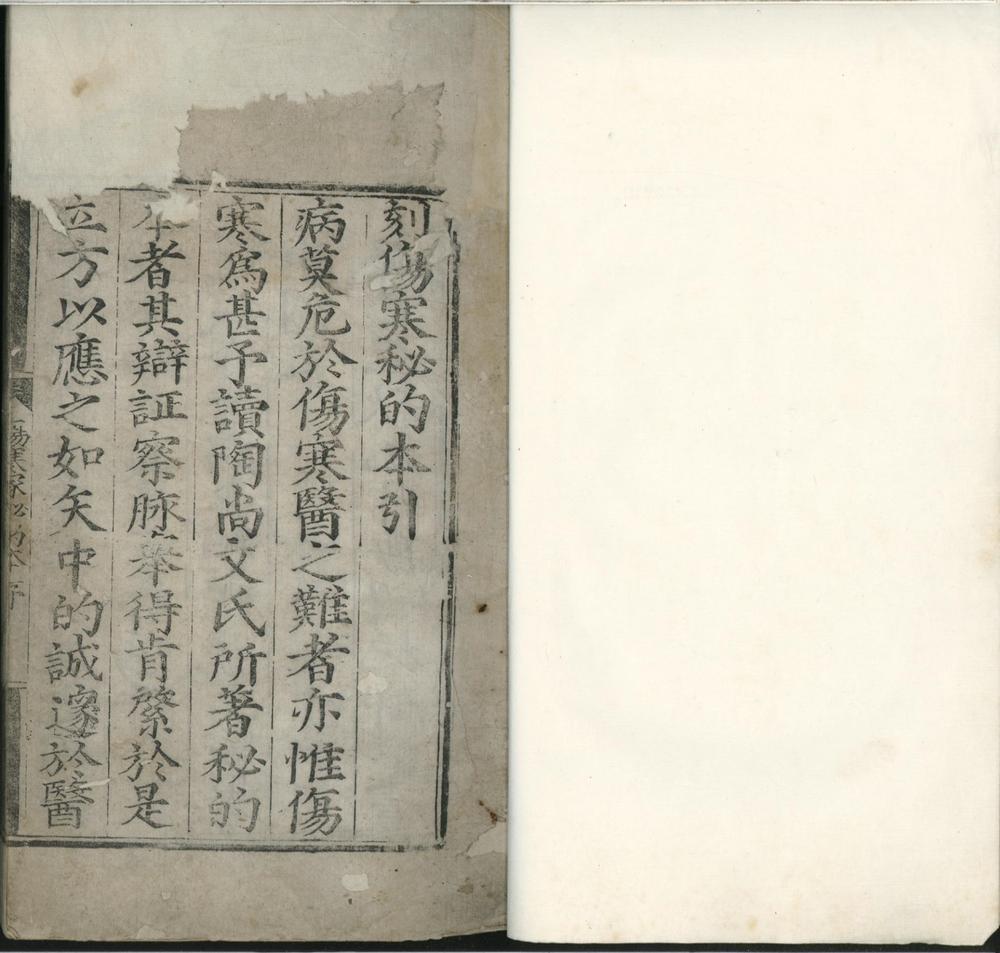 刻傷寒秘的本引
病莫危於傷寒醫之難者亦惟傷
寒爲甚予讀陶尚文氏所著秘的
本者其辯証察脉举得肯綮於是
立方以應之如矢中的誠邃於醫
傷寒家秘的本序